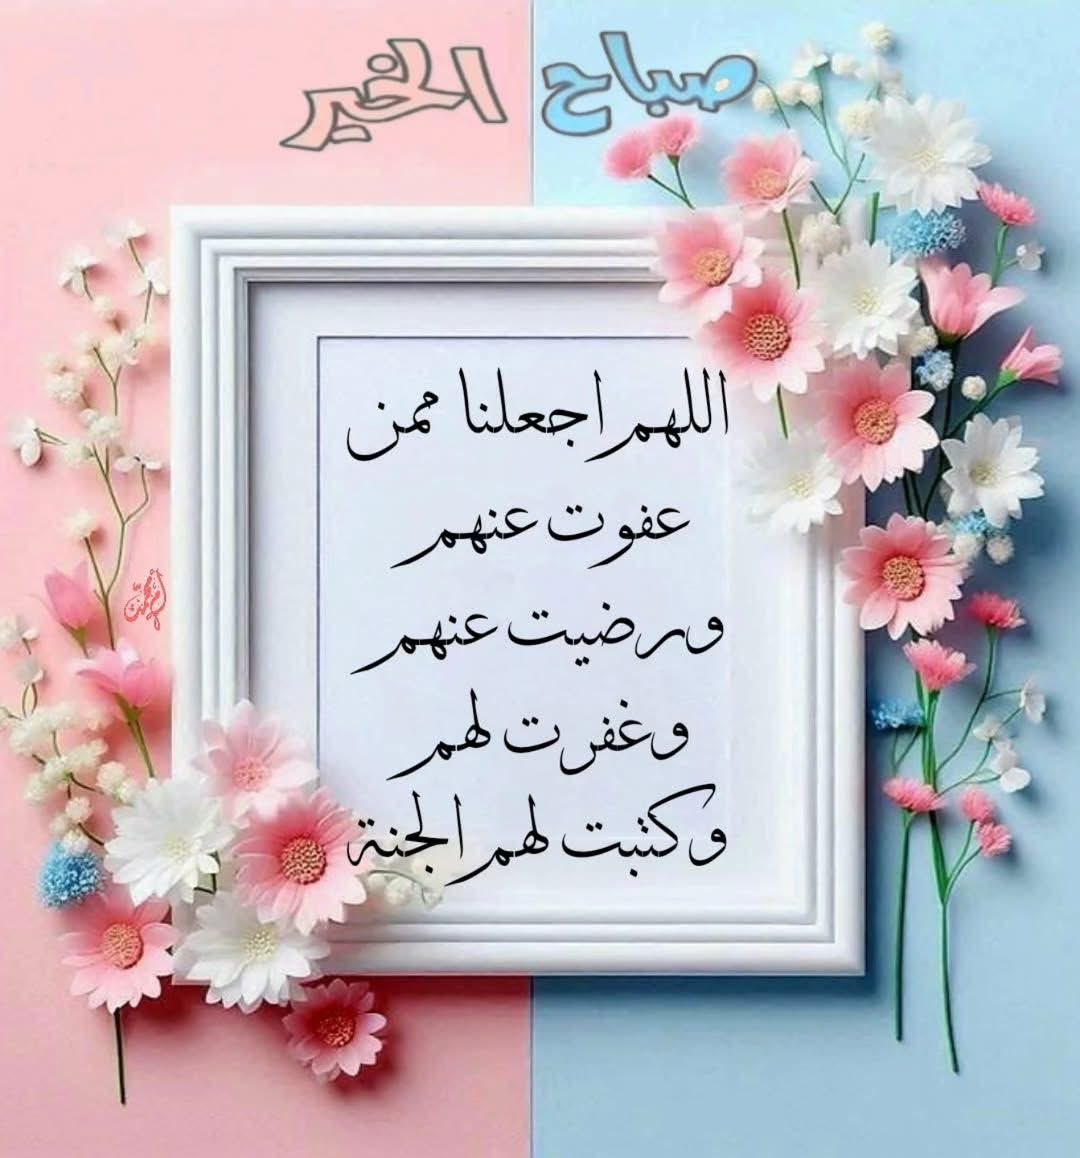 صباح الخير
اللهم اجعلنا ممن
عفوت عنهم
ورضيت عنهم
وغفرت لهم
وكتبت لهم الجنة